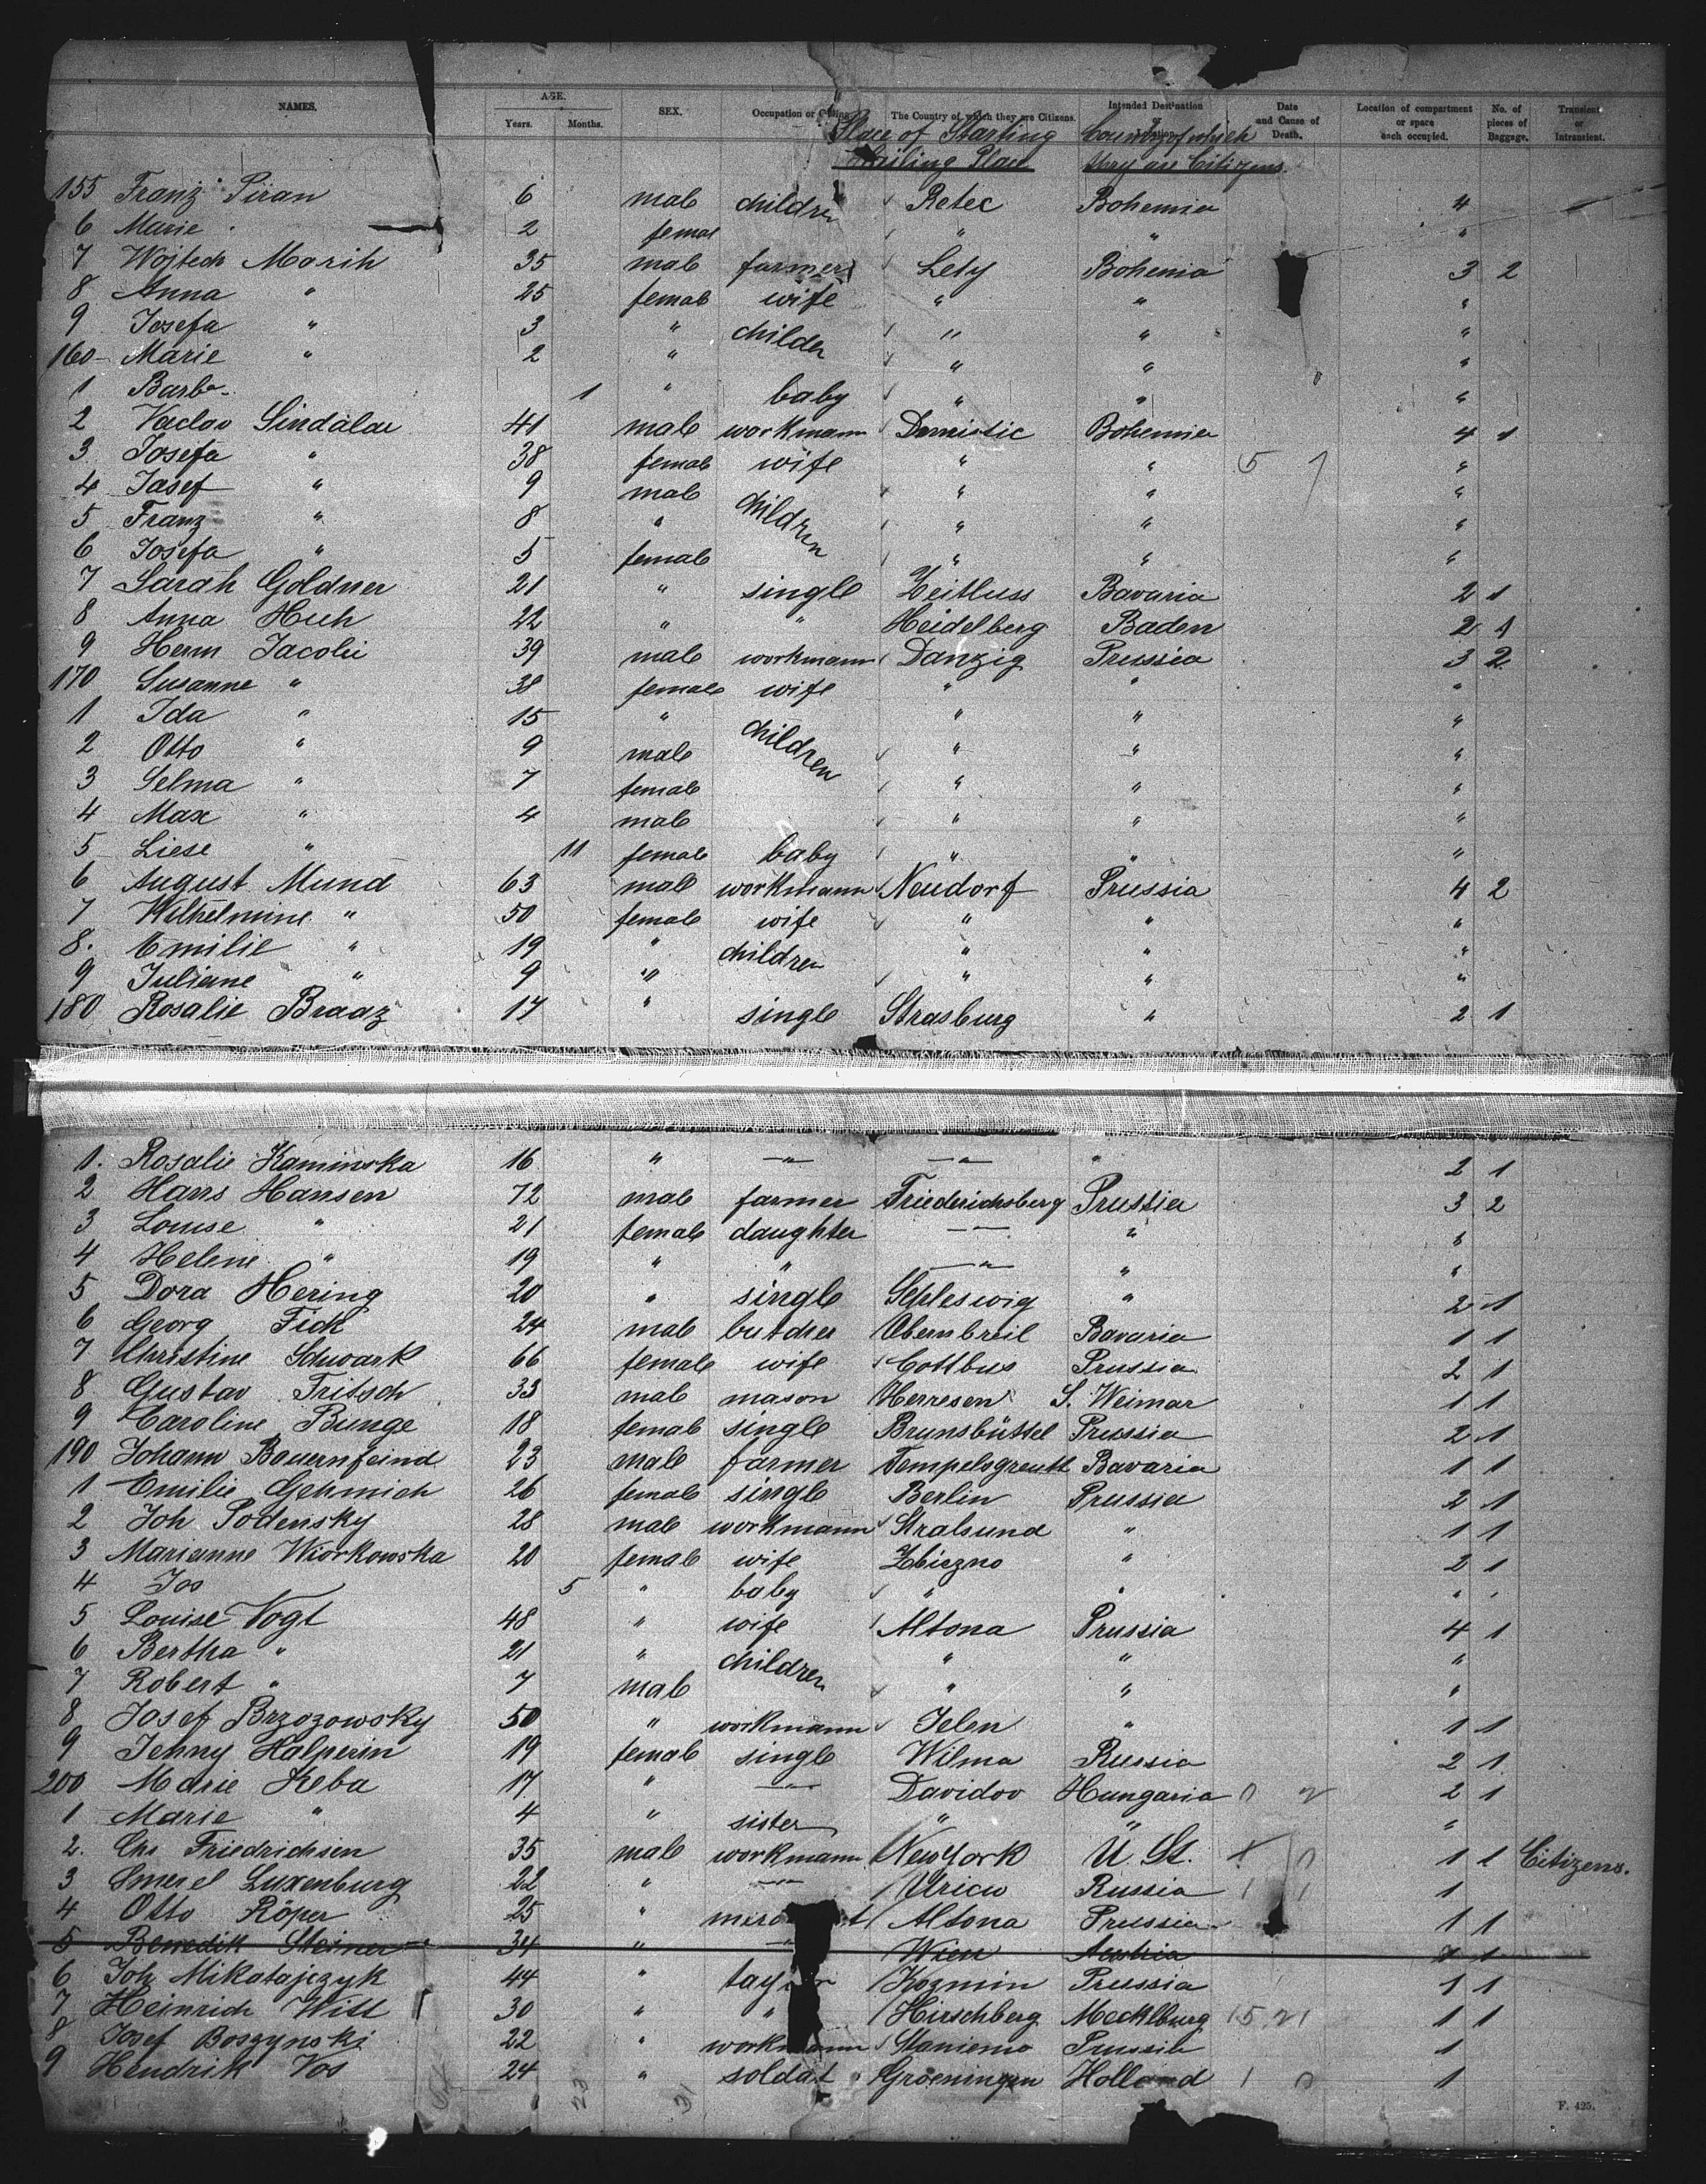 NAMES. AGE. Years. Months. SEX. Occupation or Calling. The Country of which they are Citizens. Intended Destination Date and Cause of Death. Location of compartment or space each occupied. No. of pieces of Baggage. Transient or Intransient.
Place of Starting Country of which
Place they are Citizens
155 Franz Piran 6 male children Retec Bohemia "
6 Marie " 2 femal " " "
7 Wojtech Marih 35 male farmer Lety Bohemia 3 2
8 Anna " 25 female wife " " "
9 Josefa " 3 " childer " " "
160 Marie " 2 " " " "
1 Barb. 1 " baby " " "
2 Vaclav Sindalar 41 male workmann Bohemia 4 1
3 Josefa " 38 female wife " " 5 "
4 Josef " 9 male children " " "
5 Franz " 8 " " " "
6 Josefa " 5 female " " "
7 Sarah Goldner 21 " single Zeitluss Bavaria 2 1
8 Anna Huh 22 " " Heidelberg Baden 2 1
9 Herm Jacobi 39 male workmann Danzig Prussia 3 2
170 Susanne " 38 female wife " " "
1 Ida " 15 " children " " "
2 Otto " 9 male " " "
3 Selma " 7 female " " "
4 Max " 4 male " " "
5 Liese " 11 female baby " " "
6 August Mund 63 male workmann Neudorf Prussia 4 2
7 Wilhelmine " 50 female wife " " "
8. Emilie " 19 " children " " "
9 Juliane " 9 " " " "
180 Rosalie Braaz 17 " single Strasburg " 2 1
1. Rosalie Kaminska 16 " " " " 2 1
2 Hans Hansen 72 male farmer Friederichsberg Prussia 3 2
3 Louise " 21 female daughter " " "
4 Helene " 19 " " " " "
5 Dora Hering 20 " single Schleswig " 2 1
6 Georg Fick 24 male butcher Obernbreit Bavaria 1 1
7 Christine Schwark 66 female wife Cottbus Prussia 2 1
8 Gustav Fritsch 33 male mason Herresen S. Weimar 1 1
9 Caroline Bunge 18 female single Brunsbüttel Prussia 2 1
190 Johann Bauernfeind 23 male farmer Tempelsgreuth Bavaria 1 1
1 Emilie Gehmich 26 female single Berlin Prussia 2 1
2 Joh Podensky 28 male workmann Stralsund " 1 1
3 Marianne Wiorkowska 20 female wife Zbiczno " 2 1
4 Jos 5 " baby " " " "
5 Louise Vogt 48 " wife Altona Prussia 4 1
6 Bertha " 21 " children " " "
7 Robert " 7 male " " "
8 Josef Brzozowsky 50 " workmann Jelen " 1 1
9 Jenny Halperin 19 female single Wilna Russia 2 1
200 Marie Keba 17 " " Davidov Hungaria 2 1
1 Marie " 4 " sister " " "
2. Chs Friedrichsen 35 male workmann New York U. St. 1 1 Citizens.
3 Smerel Luxenburg 22 " " Russia 1
4 Otto Röper 25 " Altona Prussia 1 1
5 Benedikt Steiner 34 " " Wien Austria 1 1
6 Joh Mikatajczyk 44 " Kozmin Prussia 1 1
7 Heinrich Witt 30 " " Hirschberg Mecklburg 1 1
8 Josef Boszynski 22 " workmann Prussia 1
9 Hendrik Vos 24 " soldat Groeningen Holland 1
23 31
F. 425.